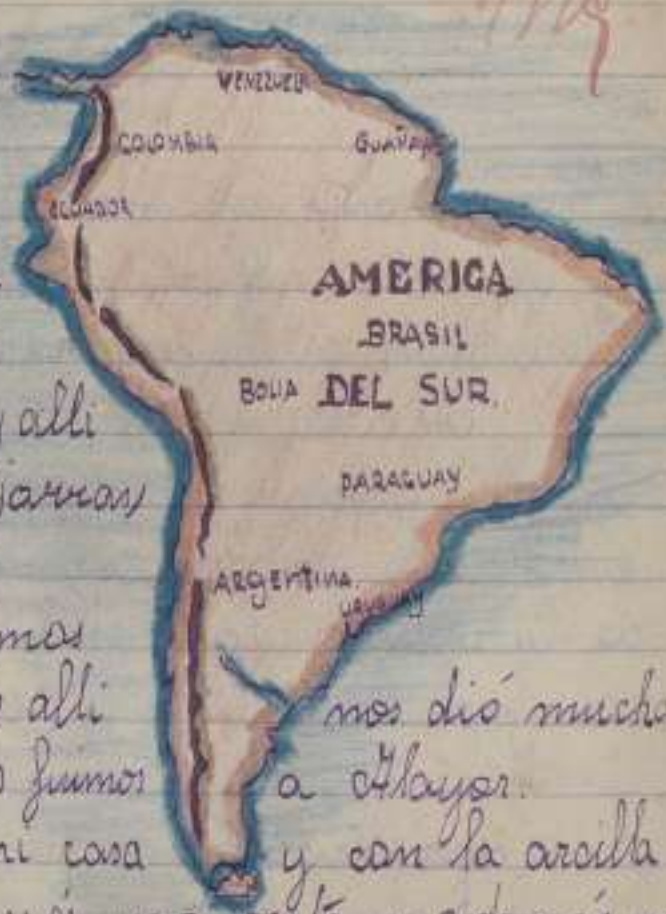 VENEZUELA
COLOMBIA GUAÑAYAS
ECUADOR
AMERICA
BRASIL
BOLIA DEL SUR.
PARAGUAY
ARGENTINA.
URUGUAY
alli
jarras
mos
alli nos dió mucha
fuimos a Alayor.
casa y con la arcilla